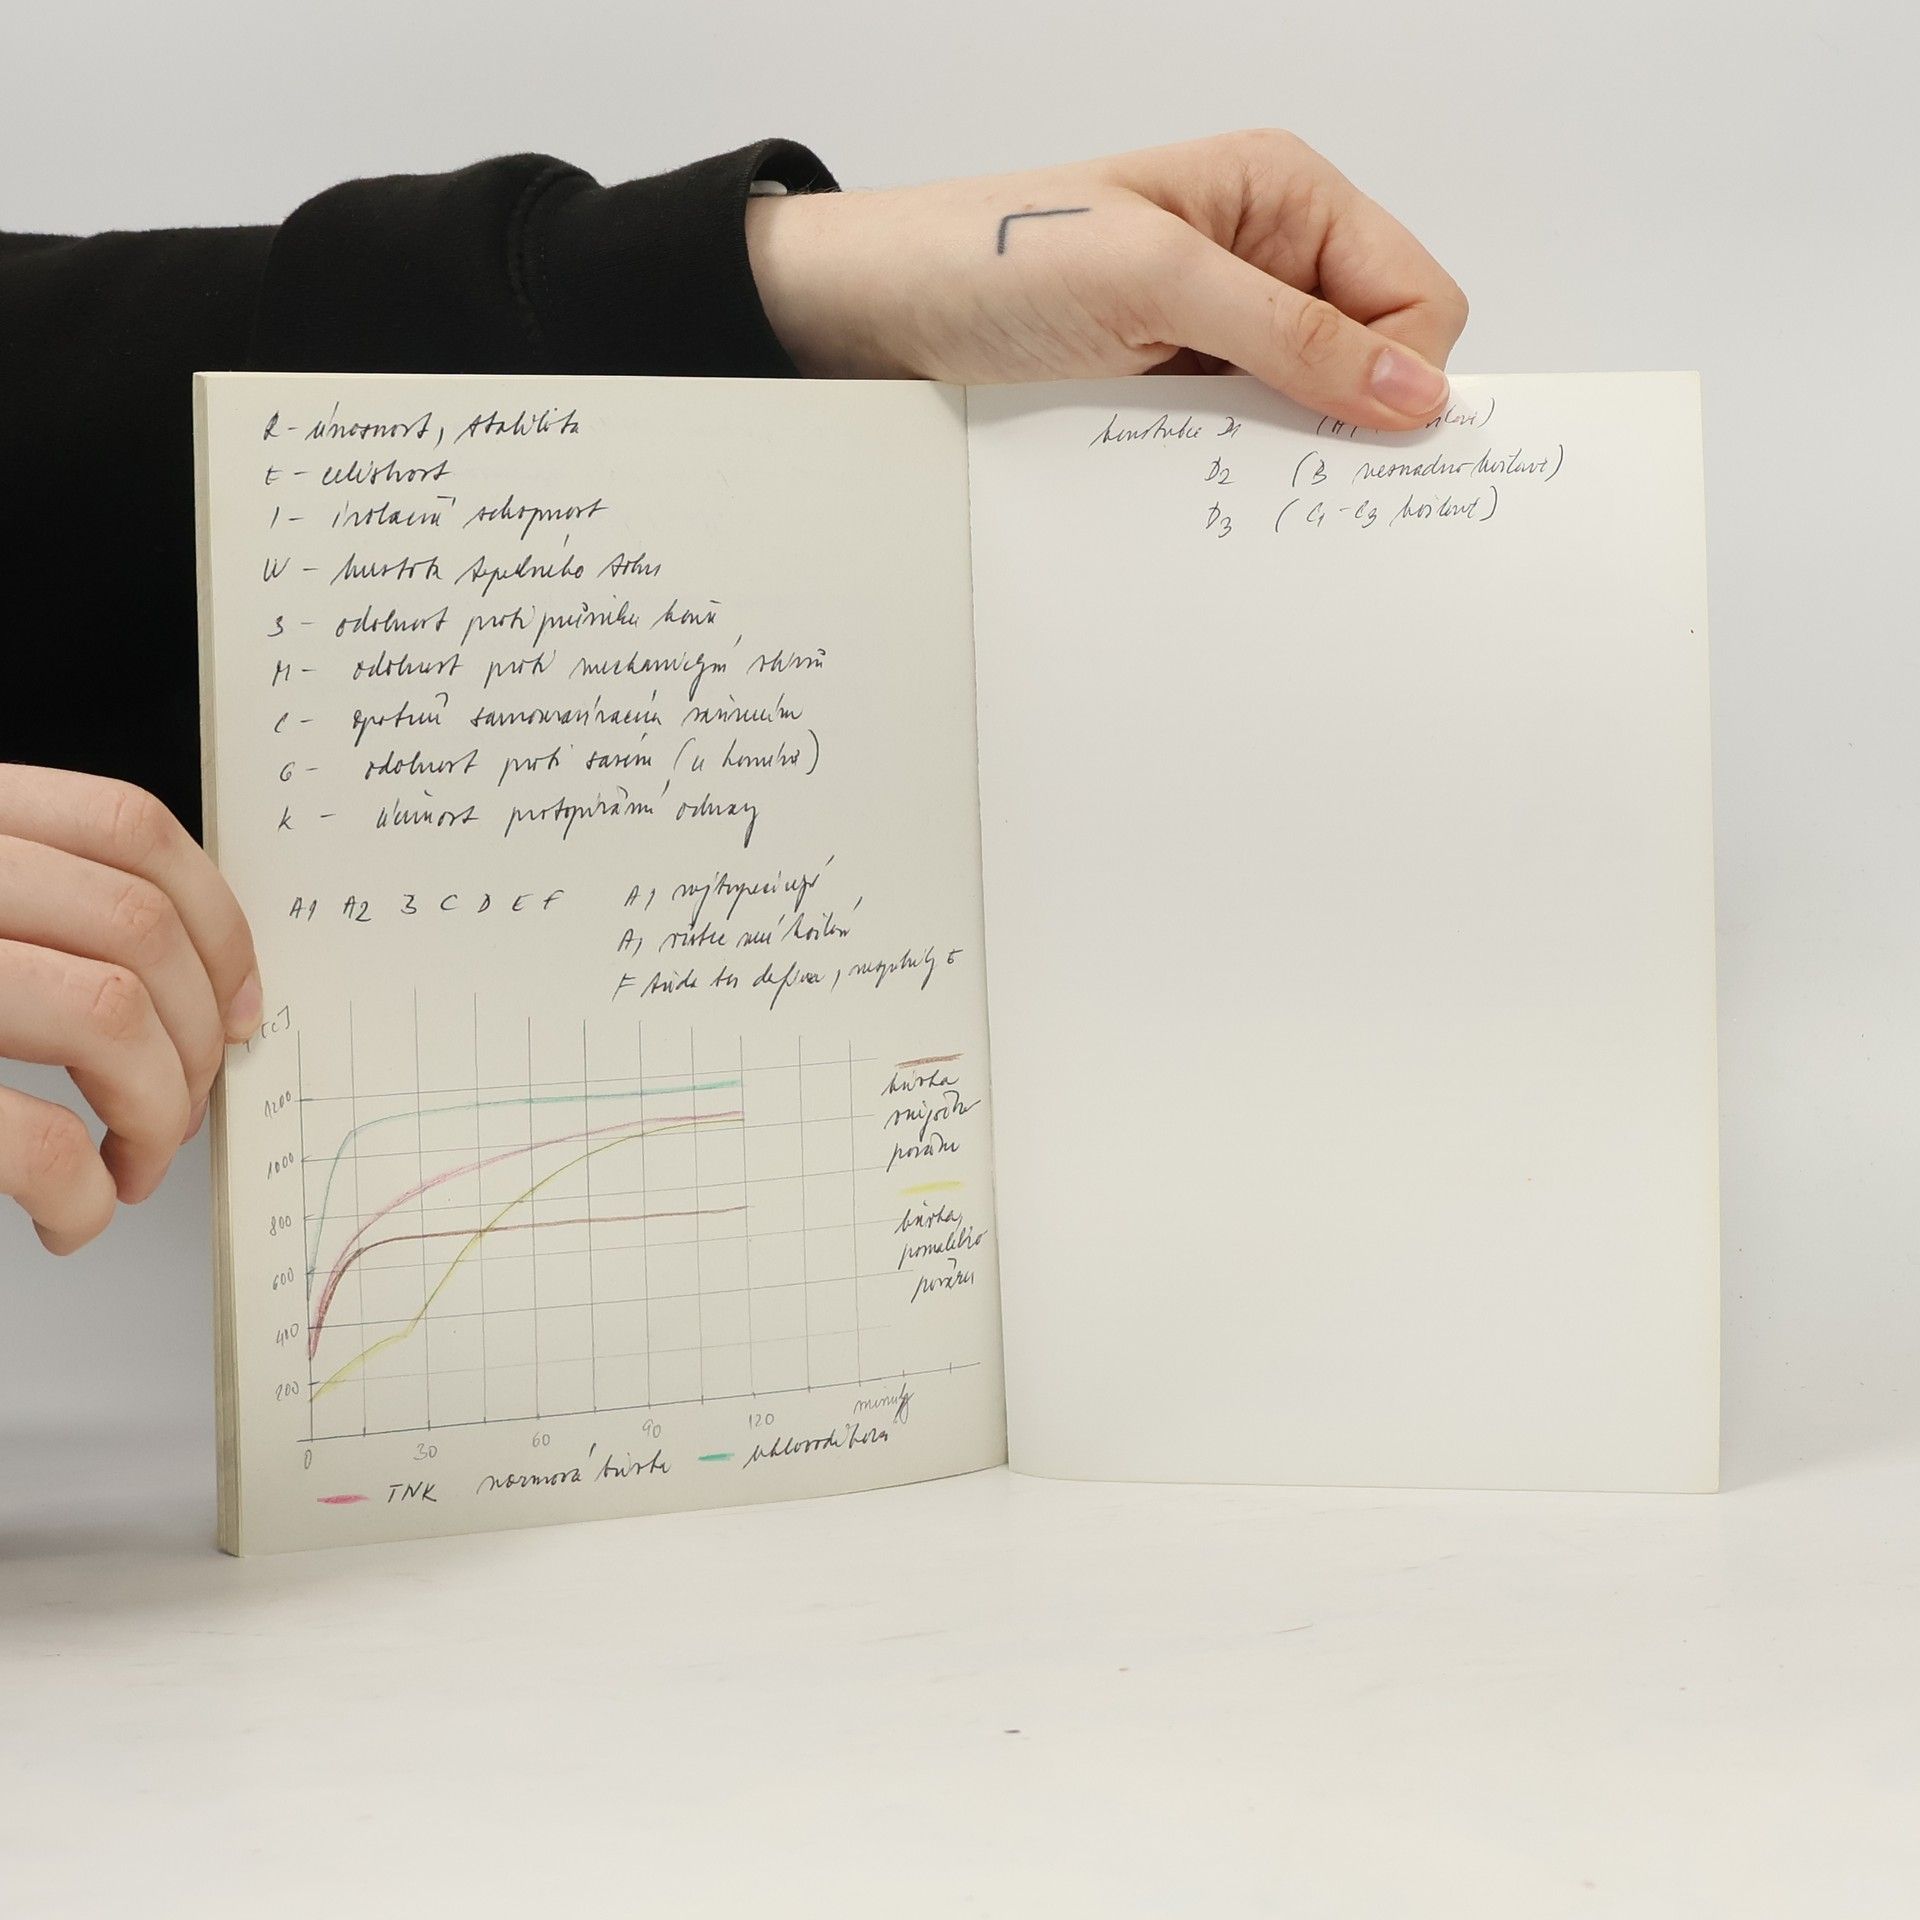 R - únosnost, stabilita
E - celistvost
I - izolační schopnost
W - hustota tepelného toku
S - odolnost proti průniku kouře
M - odolnost proti mechanickým vlivům
C - opatření samozavíracím zařízením
G - odolnost proti sazím (u komínů)
K - účinnost protipožární ochrany
A1 A2 B C D E F
A1 nejbezpečnější
A1 vůbec není hořlavá
F třída bez definice, nesplnily E
[C]
1200
1000
800
600
400
200
0 30 60 90 120 minuty
křivka
vnějšího
požáru
křivka
pomalého
požáru
TNK normová křivka
uhlovodíková
konstrukce D1
D2 (B nesnadno hořlavé)
D3 (C1 - C3 hořlavé)